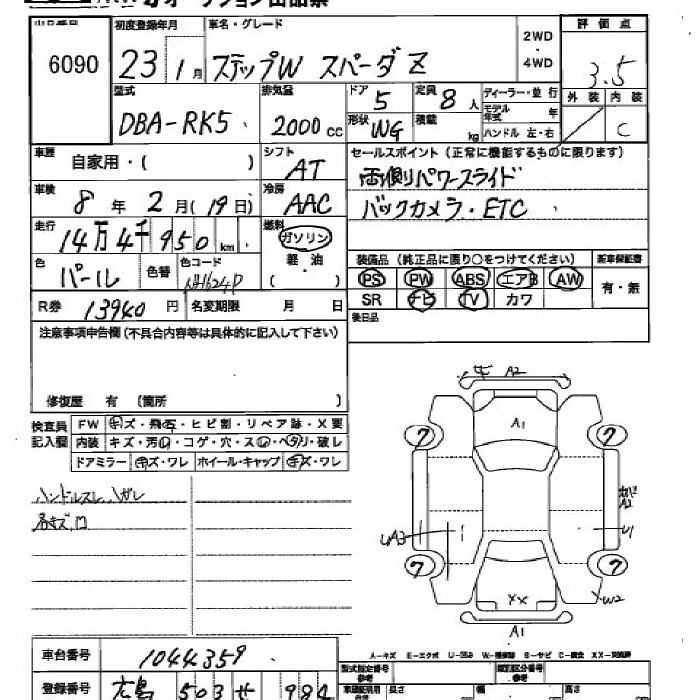 オークション出品票
出品番号 初度登録年月 車名・グレード 2WD・4WD 評価点
6090 23 1月 ステップW スパーダ Z 3.5
型式 排気量 ドア 定員 ディーラー・並行 外装 内装
DBA-RK5 2000cc 5 8人 モデル年式 年 C
形状 WG 積載 kg ハンドル 左・右
車歴 自家用・( ) シフト AT セールスポイント(正常に機能するものに限ります)
車検 8年2月(19日) 冷房 AAC 両側パワースライド
走行 14万4千950km 燃料 ガソリン 軽・油 ( ) バックカメラ・ETC
色 パール 色替 色コード NH624P 装備品(純正品に限り○をつけてください) 新車保証書
PS PW ABS エアB AW 有・無
R券 13940円 名変期限 月 日 SR ナビ TV カワ
注意事項申告欄(不具合内容等は具体的に記入して下さい) 後日品
修復歴 有 (箇所 )
検査員記入欄 FW キズ・飛石・ヒビ割・リペア跡・X要
内装 キズ・汚レ・コゲ・穴・スレ・ヘタリ・破レ
ドアミラー キズ・ワレ ホイール・キャップ キズ・ワレ
ハンドルスレ ハガレ
各キズ凹
キ A2
A1
7 7
カバA2
UA3 U1
7 7
XX W2
A1
A-キズ E-エクボ U-凹み W-補修跡 S-サビ C-腐食 XX-交換済
車台番号 1044359 型式指定番号 参考 類別区分番号 参考
登録番号 広島 503 せ 984 車庫証明用 長さ 幅 高さ